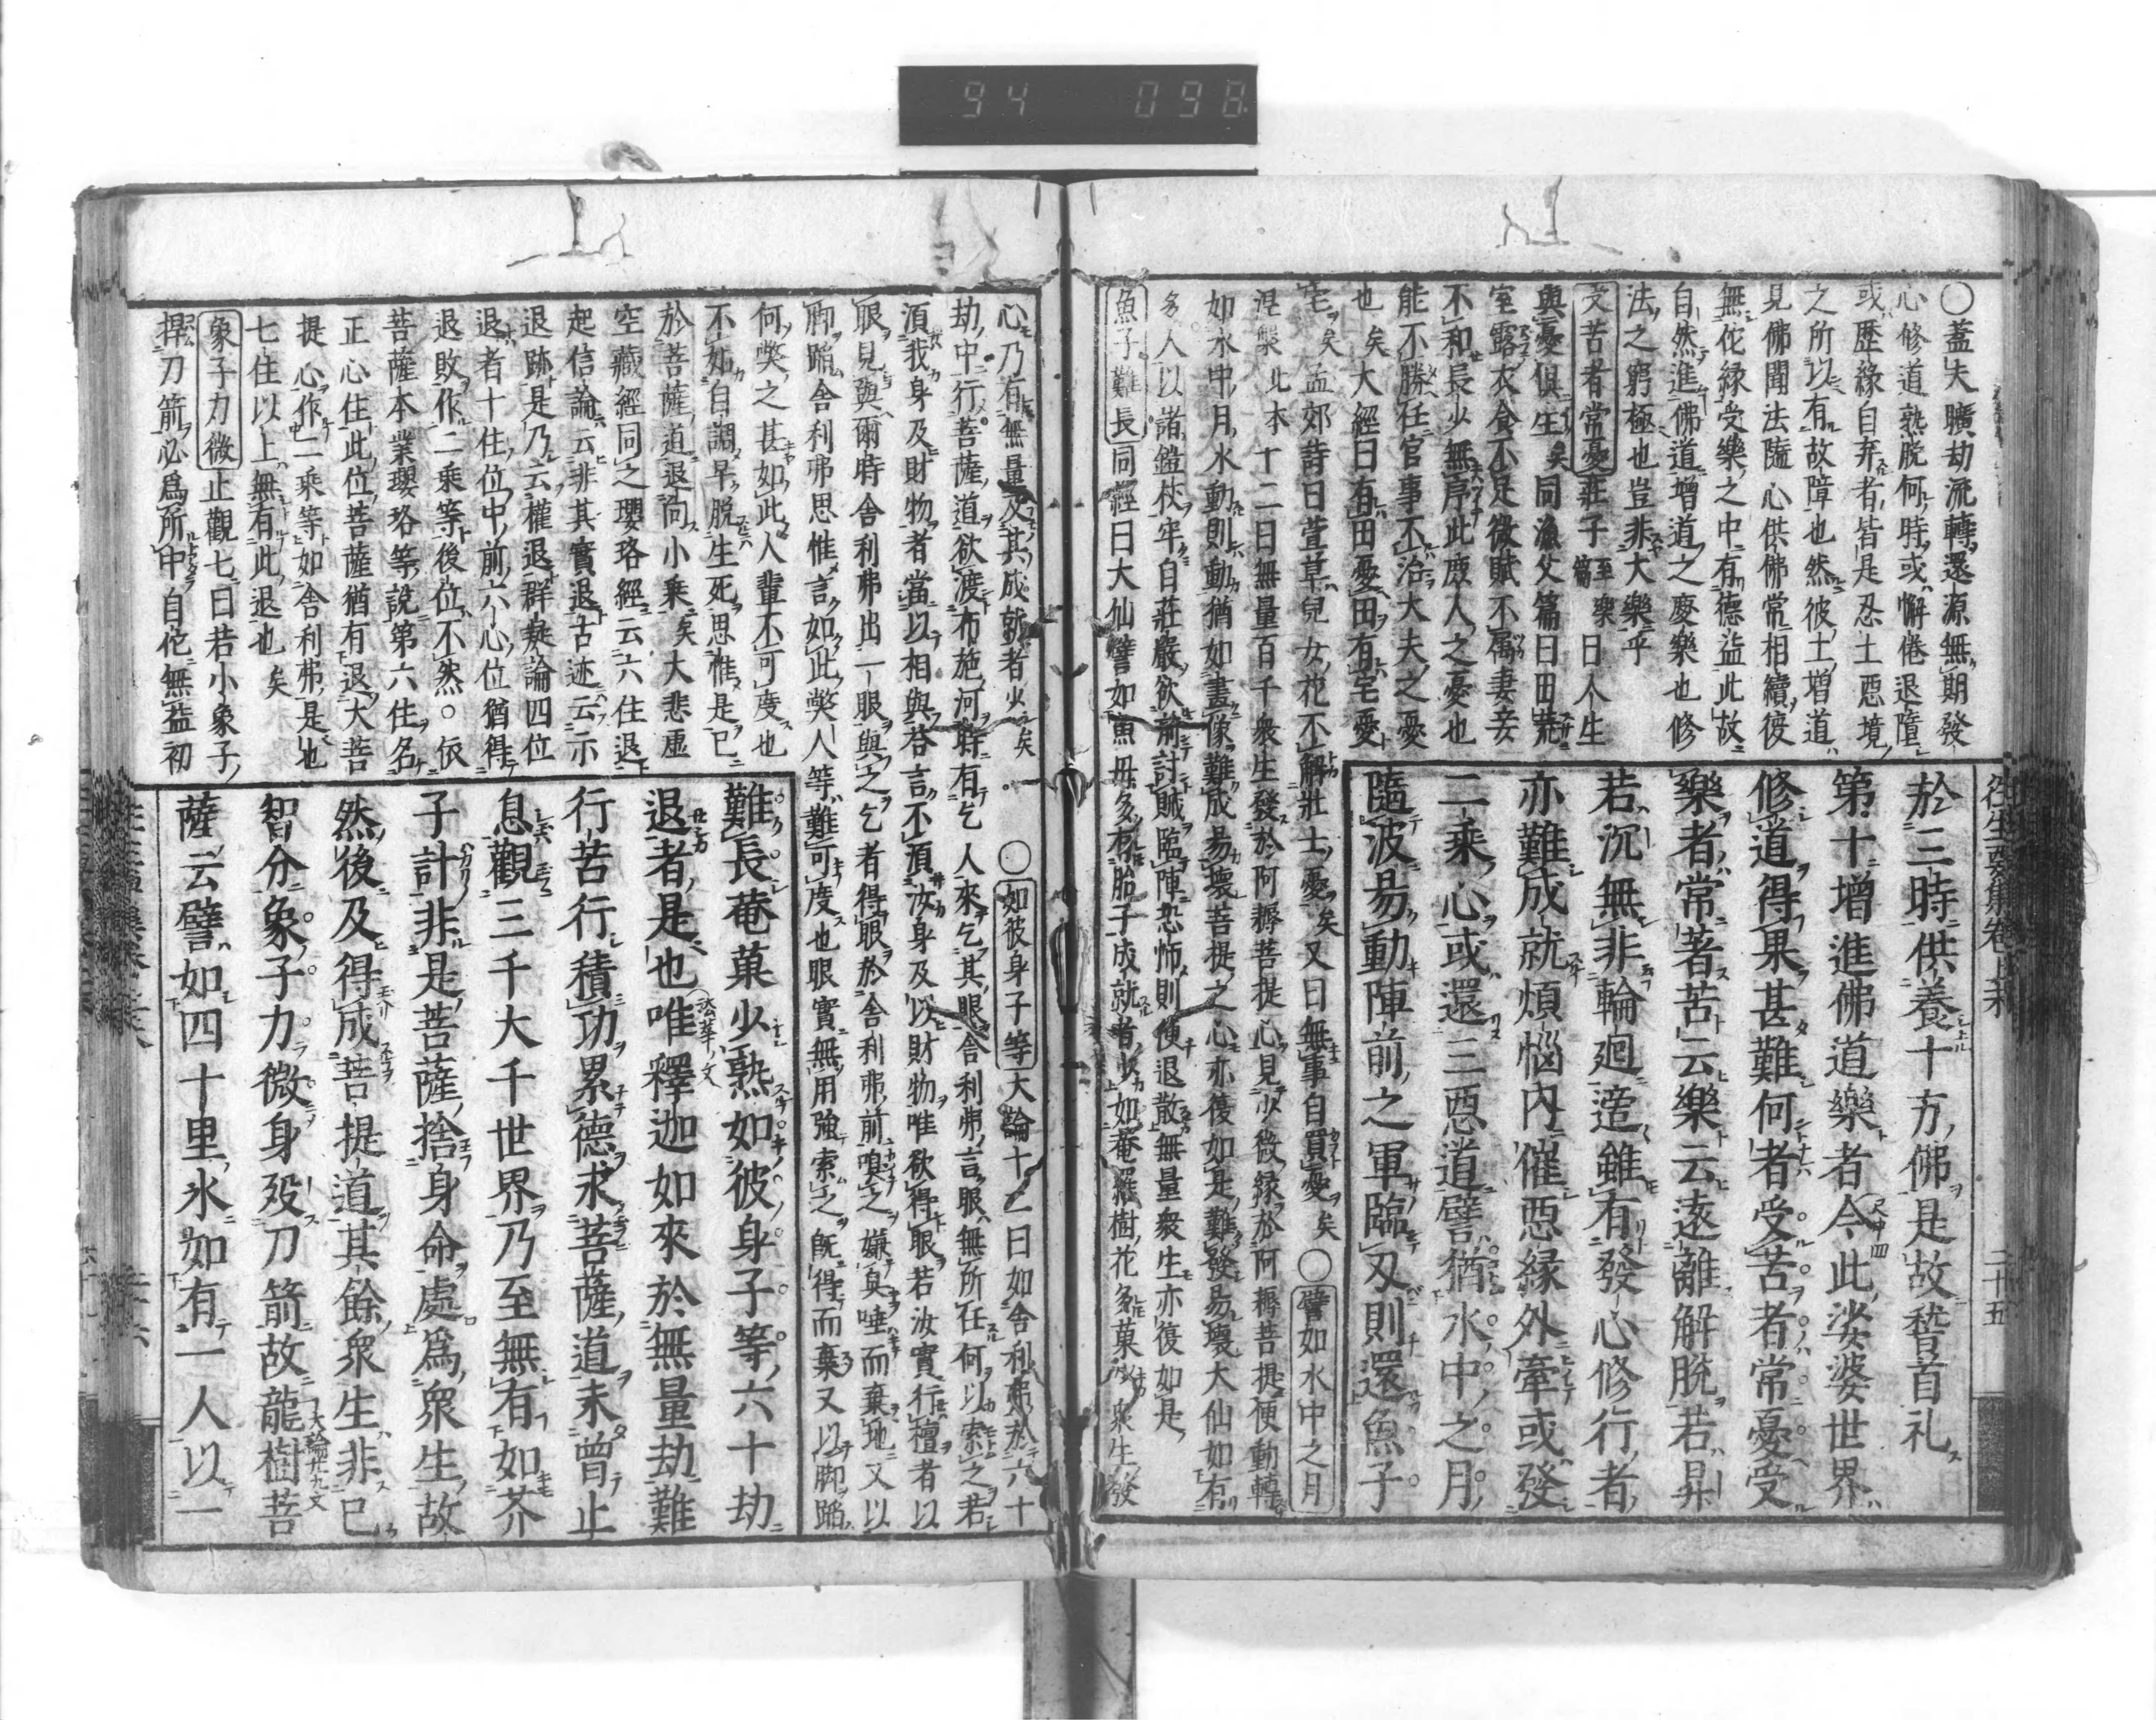 94 098
往生要集卷上末 二十五
○蓋夫曠劫流轉還源無期發
心修道熟脱何時或懈倦退墮
或歷緣自弃者皆是忍土惡境
之所以有故障也然彼土增道
見佛聞法隨心供佛常相續彼
無佗緣受樂之中有德益此故
自然進佛道增道之慶樂也修
法之窮極也豈非大樂乎
文苦者常憂莊子至樂篇曰人生
與憂俱生矣同漁父篇曰田荒
室露衣食不足徵賦不屬妻妾
不和長少無序此庶人之憂也
能不勝任官事不治大夫之憂
也矣大經曰有田憂田有宅憂
宅矣孟郊詩曰萱草兒女花不解壯士憂矣又曰無事自買憂矣○譬如水中之月
涅槃北本十二曰無量百千衆生發於阿耨菩提心見少微緣於阿耨菩提便動轉
如水中月水動則動猶如畫像難成易壞菩提之心亦復如是難發易壞大仙如有
多人以諸鎧杖牢自莊嚴欲前討賊臨陣恐怖則便退散無量衆生亦復如是
魚子難長同經曰大仙譬如魚母多有胎子成就者少如菴羅樹花多菓少衆生發
於三時供養十方佛是故稽首礼
第十增進佛道樂者今此娑婆世界
修道得果甚難何者受苦者常憂受
樂者常著苦云樂云遠離解脱若昇
若沉無非輪廻適雖有發心修行者
亦難成就煩惱內催惡緣外牽或發
二乘心或還三惡道譬猶水中之月
隨波易動陣前之軍臨刃則還魚子
心乃有無量及其成就者少矣○如彼身子等大論十二曰如舍利弗於六十
劫中行菩薩道欲渡布施河時有乞人來乞其眼舍利弗言眼無所任何以索之若
須我身及財物者當以相與荅言不須汝身及以財物唯欲得眼若汝實行檀者以
眼見與爾時舍利弗出一眼與之乞者得眼於舍利弗前嗅之嫌臭唾而棄地又以
脚蹈舍利弗思惟言如此弊人等難可度也眼實無用強索之既得而棄又以脚蹈
何弊之甚如此人輩不可度也
不如自調早脱生死思惟是已
於菩薩道退向小乘矣大悲虛
空藏經同之瓔珞經云六住退
起信論云非其實退古迹云示
退跡是乃云權退群疑論四位
退者十住位中前六心位猶得
退敗作二乘等後位不然○依
菩薩本業瓔珞等說第六住名
正心住此位菩薩猶有退大菩
提心作二乘等如舍利弗是也
七住以上無有此退也矣
象子力微止觀七曰若小象子
擇刀箭必爲所中自佗無益初
難長菴菓少熟如彼身子等六十劫
退者是也唯釋迦如來於無量劫難
行苦行積功累德求菩薩道未曾止
息觀三千大千世界乃至無有如芥
子計非是菩薩捨身命處爲衆生故
然後及得成菩提道其餘衆生非己
智分象子力微身歿刀箭故龍樹菩
薩云譬如四十里氷如有一人以一